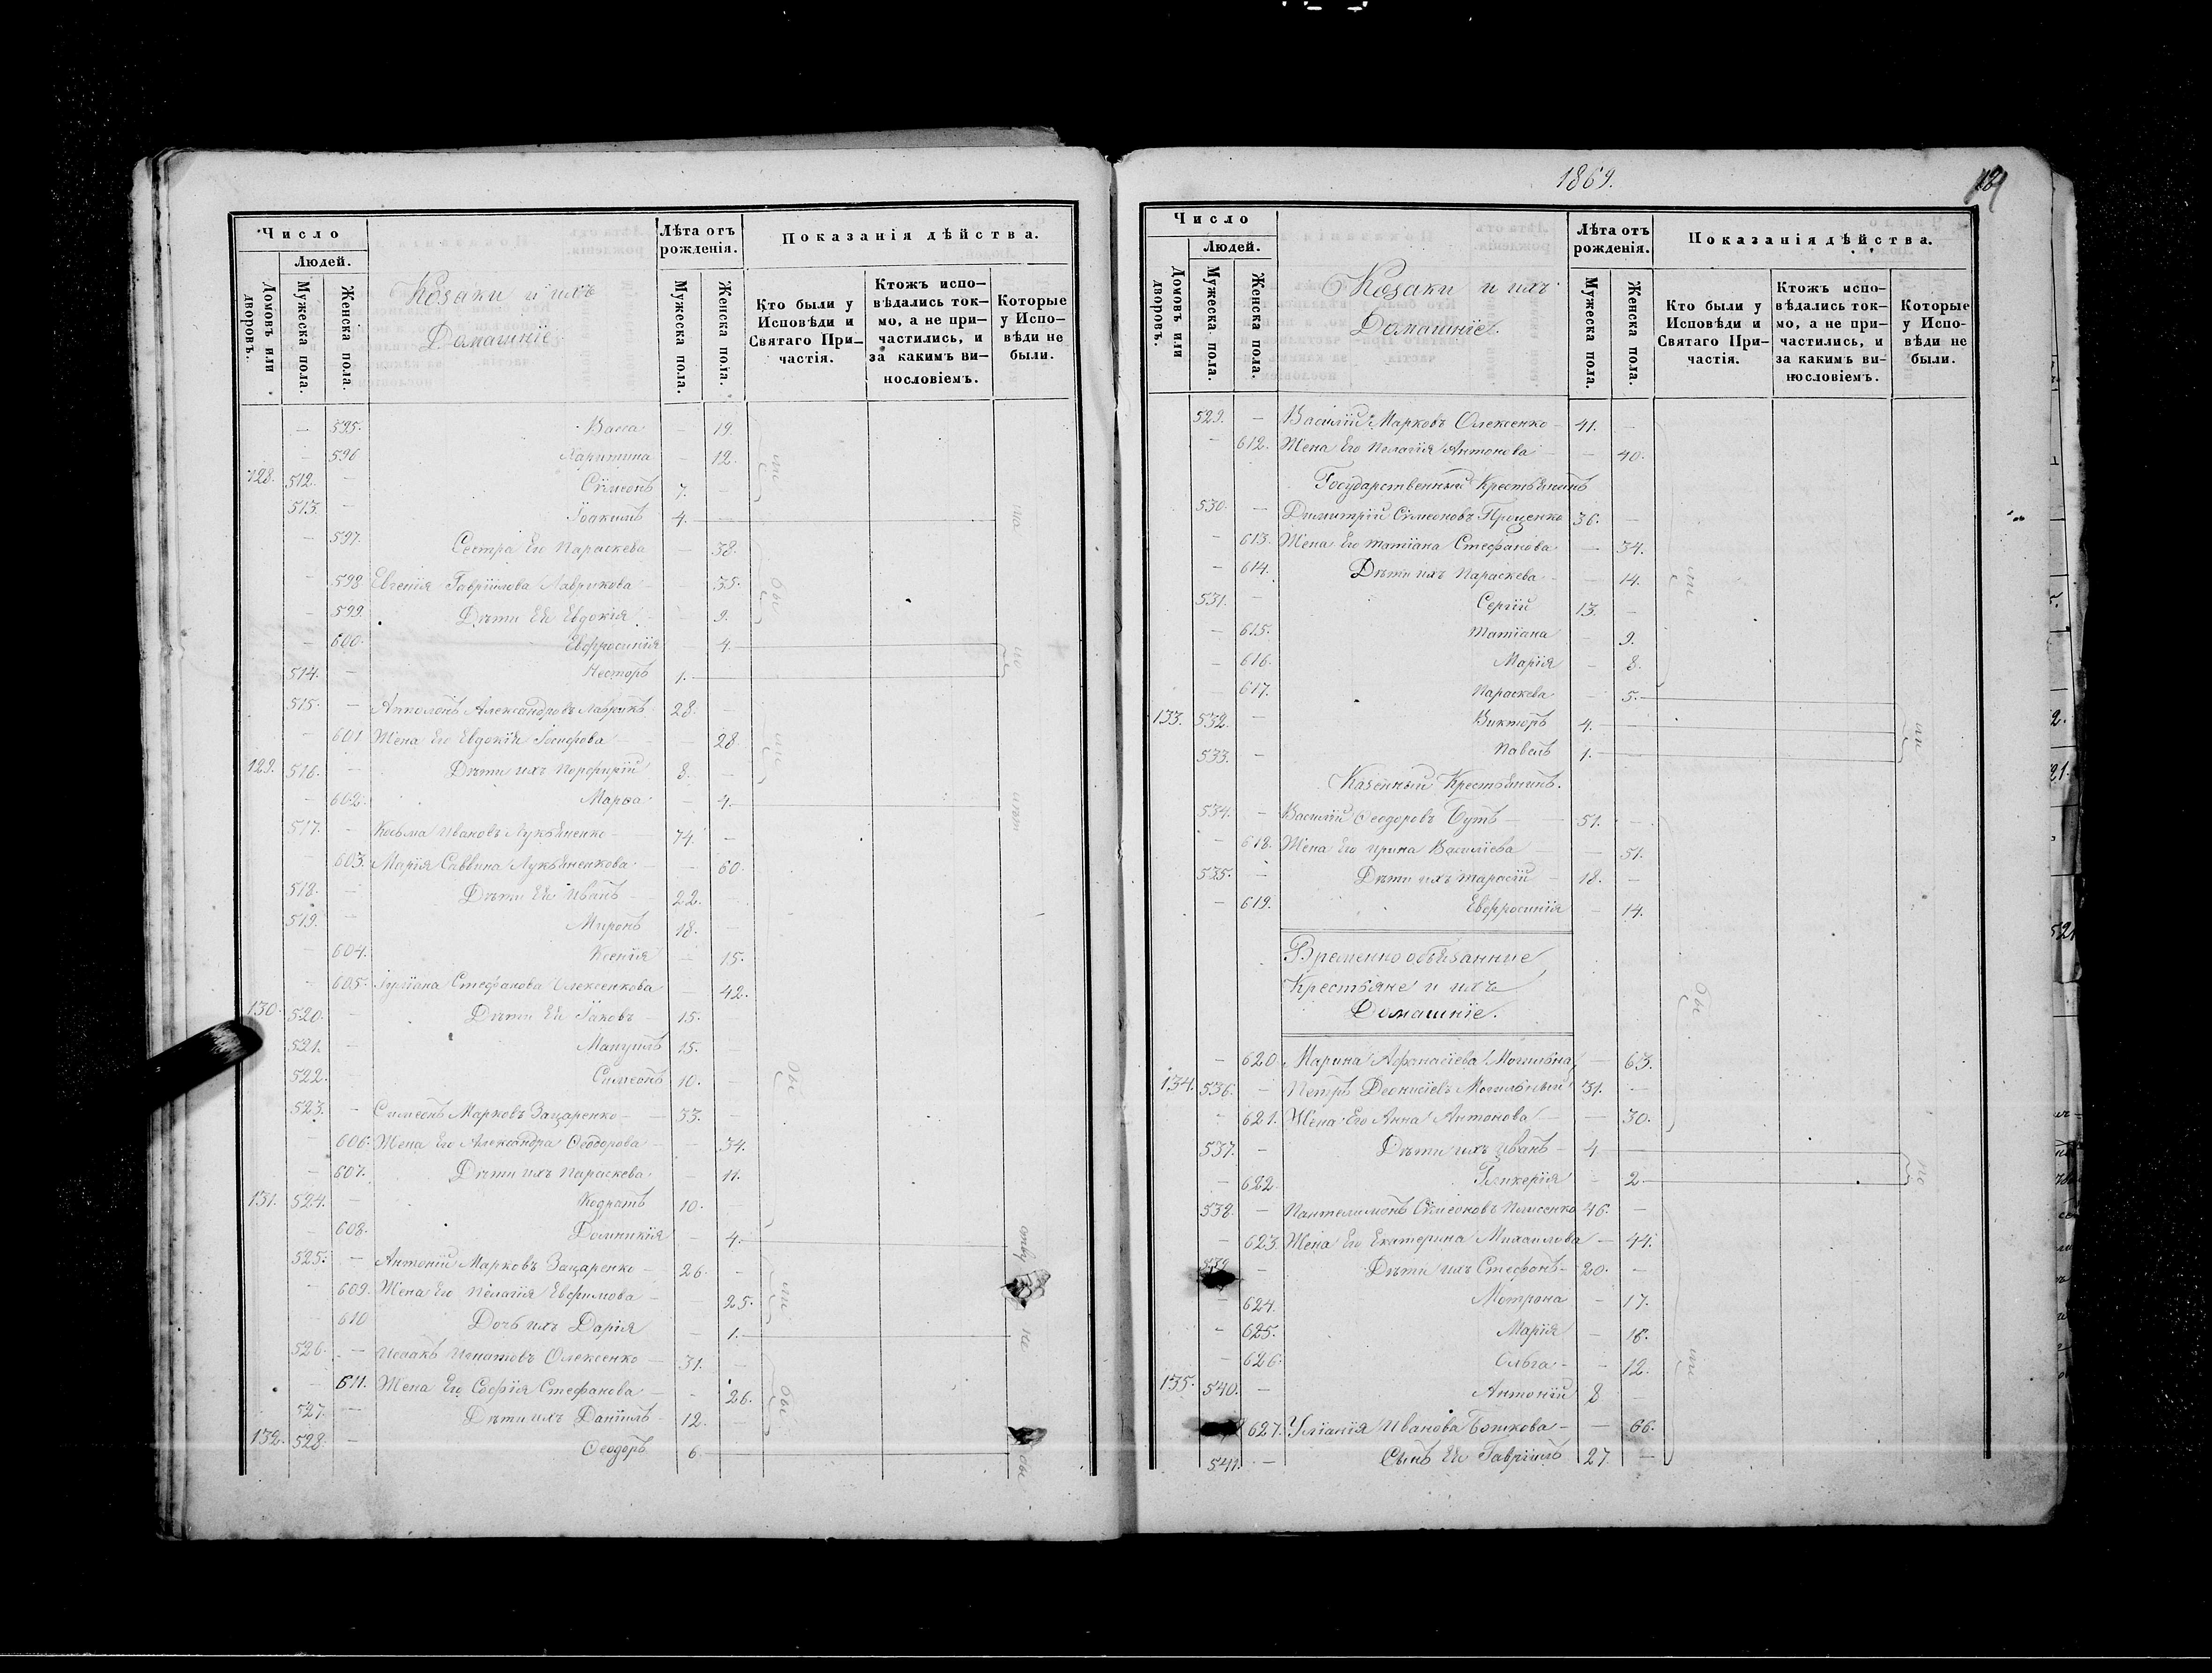 Число
Людей.
Домовъ или дворовъ.
Мужеска пола.
Женска пола.
Козаки и ихъ
Домашніе.
Лѣта отъ рожденія.
Мужеска пола.
Женска пола.
Показанія дѣйства.
Кто были у Исповѣди и Святаго Причастія.
Ктожъ исповѣдались токмо, а не причастились, и за какимъ винословіемъ.
Которые у Исповѣди не были.
— 595. Васса — 19.
— 596 Харитина — 12.
128. 512. — Сѷмеонъ 7. —
513. — Іоакимъ 4. —
— 597. Сестра Его Параскева — 38.
— 598 Евгенія Гавріилова Лаврикова — 35.
— 599. Дѣти Ея Евдокія — 9.
— 600. Евфросинія — 4.
514. — Несторъ 1.
515. — Александровъ Лаврикъ 28. —
— 601 Жена Его Евдокія Іосифова — 28.
129. 516. — Дѣти ихъ Порфирій 8. —
— 602. Марѳа — 4.
517. — Козьма Ивановъ Лукьяненко 74. —
— 603. Марія Саввина Лукьяненкова — 60.
518. — Дѣти Ея Иванъ 22. —
519. — Миронъ 18. —
— 604. Ксенія — 15.
— 605. Іуліана Стефанова Олексенкова — 42.
130. 520. — Дѣти Ея Іаковъ 15. —
521. — Мануилъ 15. —
522. — Симеонъ 10. —
523. — Симеонъ Марковъ Зацаренко 33. —
— 606. Жена Его Александра Ѳеодорова — 34.
— 607. Дѣти ихъ Параскева — 11.
131. 524. — Кодратъ 10. —
— 608. Домникія — 4.
525. — Антоній Марковъ Зацаренко 26. —
— 609. Жена Его Пелагія Евфимова — 25.
610 Дочь ихъ Дарія — 1.
526. — Исаакъ Игнатовъ Олексенко 31. —
— 611. Жена Его Софія Стефанова — 26.
527. — Дѣти ихъ Даніилъ 12. —
132. 528. — Ѳеодоръ 6.
1869.
Число
Людей.
Домовъ или дворовъ.
Мужеска пола.
Женска пола.
Козаки и ихъ
Домашніе.
Лѣта отъ рожденія.
Мужеска пола.
Женска пола.
Показанія дѣйства.
Кто были у Исповѣди и Святаго Причастія.
Ктожъ исповѣдались токмо, а не причастились, и за какимъ винословіемъ.
Которые у Исповѣди не были.
529. — Василій Марковъ Олексенко 41. —
— 612. Жена Его Пелагія Антонова — 40.
Государственный Крестьянинъ
530. — Димитрій Сѷмеоновъ Проценко 36. —
— 613. Жена Его Татіана Стефанова — 34.
— 614. Дѣти ихъ Параскева — 14.
531. — Сергій 13. —
— 615. Татіана — 9.
— 616. Марія — 8.
— 617. Параскева — 5.
133. 532. — Викторъ 4. —
533. — Павелъ 1. —
Казенный Крестьянинъ.
534. — Василій Ѳеодоровъ Бутъ 51. —
— 618. Жена Его Ирина Василіева — 51.
535. — Дѣти ихъ Тарасій 18. —
— 619. Евфросинія — 14.
Временно обязанные
Крестьяне и ихъ
Домашніе.
— 620. Марина Афанасіева Могильная — 63.
134. 536. — Петръ Деонисіевъ Могильный 31. —
— 621. Жена Его Анна Антонова — 30.
537. — Дѣти ихъ Иванъ 4 —
— 622. Гликерія — 2.
538. — Пантелимонъ Сѷмеоновъ 46. —
— 623. Жена Его Екатерина Михаилова — 44.
539. — Дѣти ихъ Стефанъ 20. —
— 624. Мотрона — 17.
— 625. Марія — 16.
— 626. Ольга — 12.
135. 540. — Антоній 8 —
627. Уліанія Иванова — 66.
541. — Сынъ Ея Гавріилъ 27 —